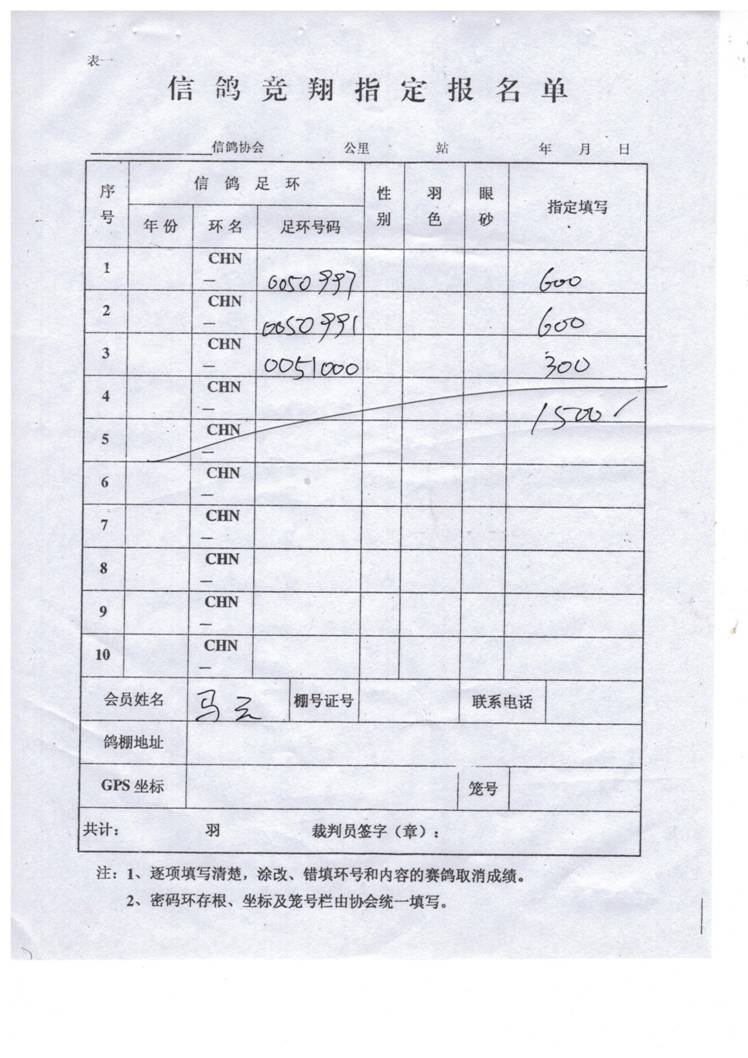 表一
信鸽竞翔指定报名单
信鸽协会 公里 站 年 月 日
序号 信鸽足环 性别 羽色 眼砂 指定填写
年份 环名 足环号码
1 CHN— 0050997 600
2 CHN— 0050991 600
3 CHN— 0051000 300
4 CHN— 1500✓
5 CHN—
6 CHN—
7 CHN—
8 CHN—
9 CHN—
10 CHN—
会员姓名 马云 棚号证号 联系电话
鸽棚地址
GPS坐标 笼号
共计： 羽 裁判员签字（章）：
注：1、逐项填写清楚，涂改、错填环号和内容的赛鸽取消成绩。
2、密码环存根、坐标及笼号栏由协会统一填写。